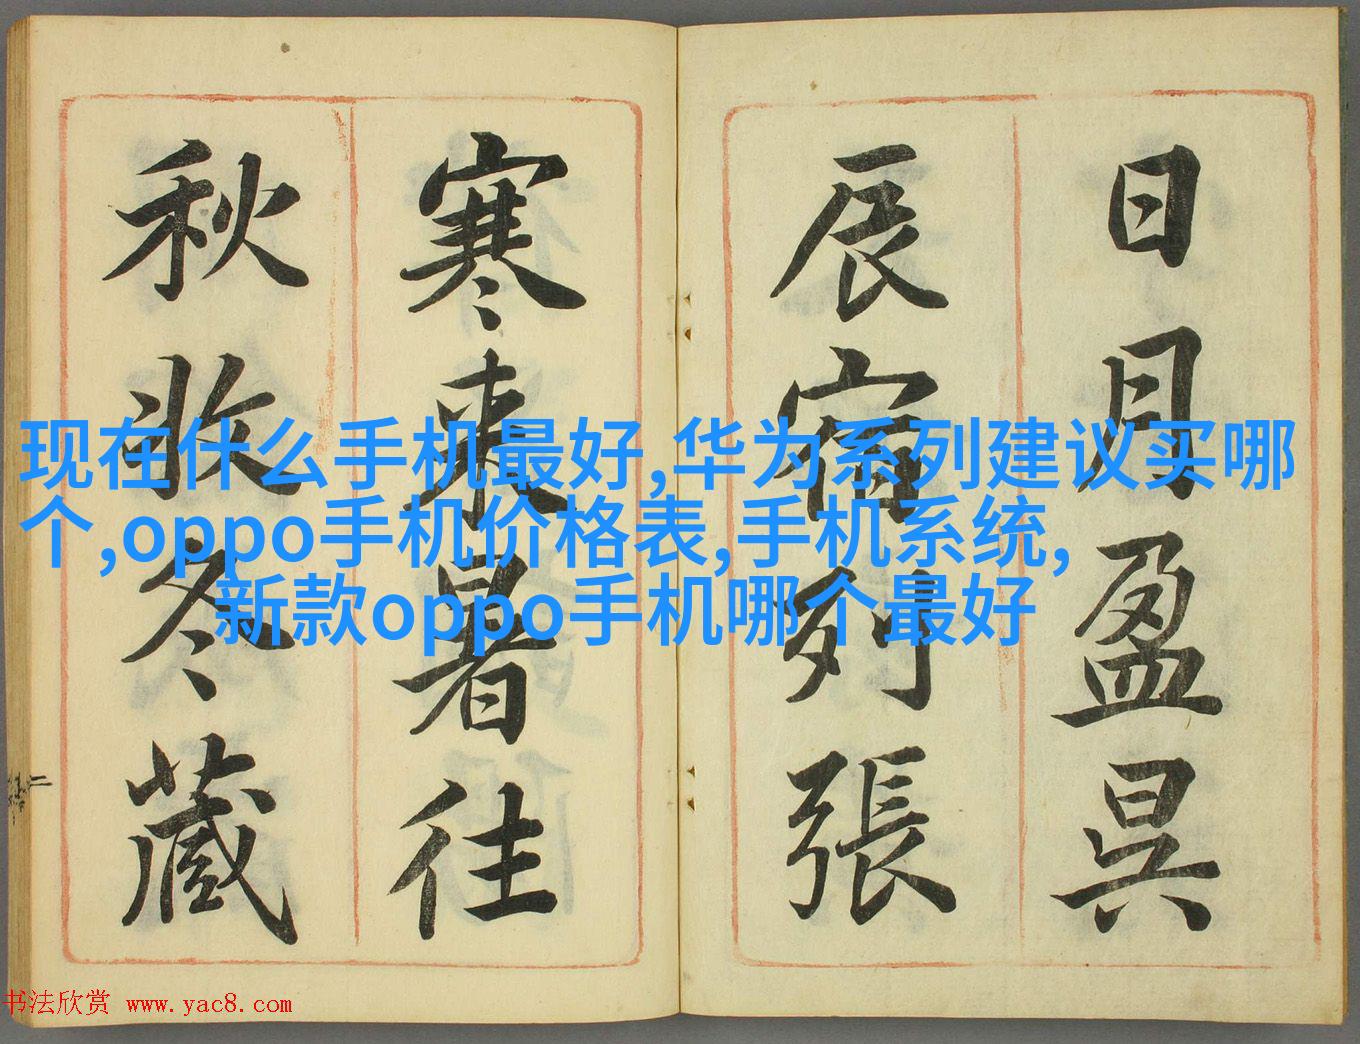 日月盈昃
辰宿列張
寒來暑往
秋收冬藏
现在什么手机最好,华为系列建议买哪
个,oppo手机价格表,手机系统,
新款oppo手机哪个最好
书法欣赏 www.yac8.com